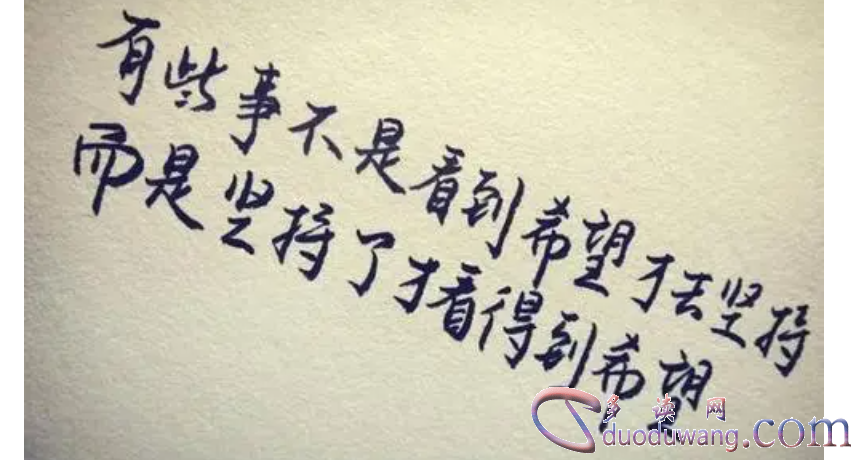 有些事不是看到希望才去坚持
而是坚持了才看得到希望
多读网
duoduwang.com